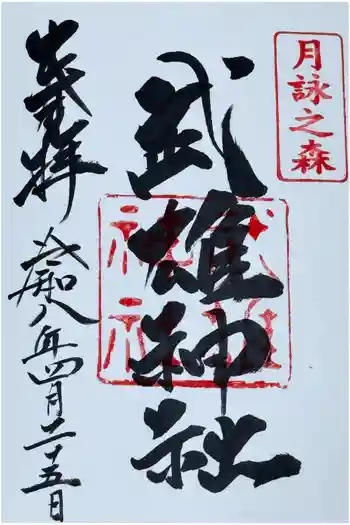 月詠之森
武雄神社
奉拝
令和八年四月二十五日